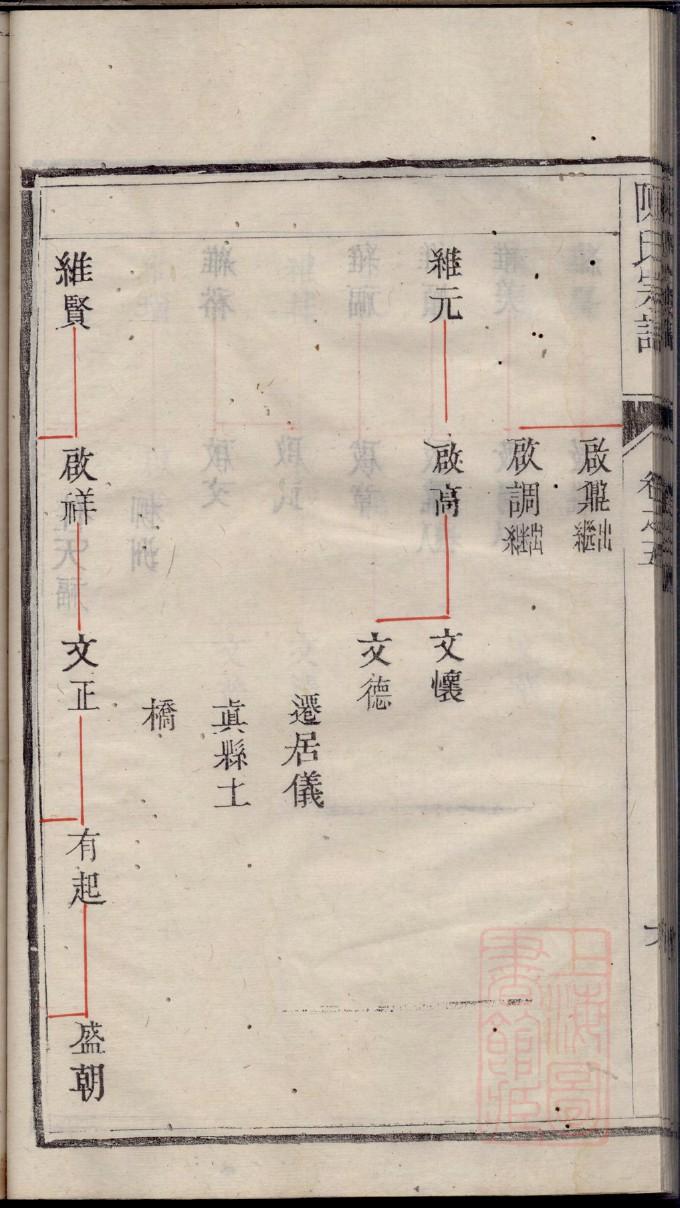 陳氏宗譜
卷之五
啟鼐出繼
啟調出繼
維元
啟高
文懷
文德
遷居儀
眞縣土
橋
維賢
啟祥
文正
有起
盛朝
上海圖
書館藏